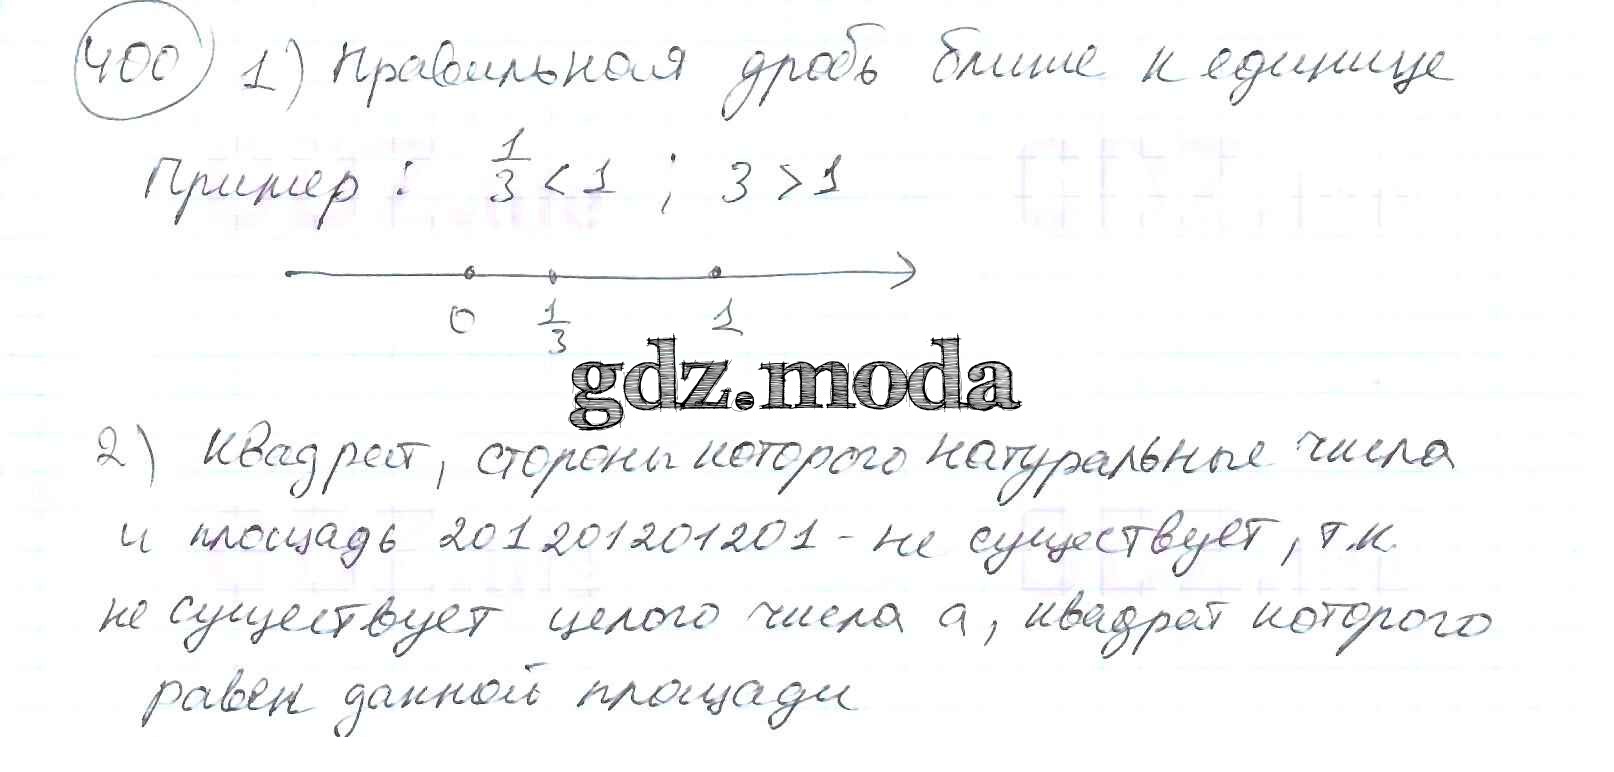 400 1) Правильная дробь ближе к единице
Пример: 1/3 < 1 ; 3 > 1
0 1/3 1
gdz.moda
2) Квадрат, стороны которого натуральные числа
и площадь 201201201201 - не существует, т.к.
не существует целого числа а, квадрат которого
равен данной площади